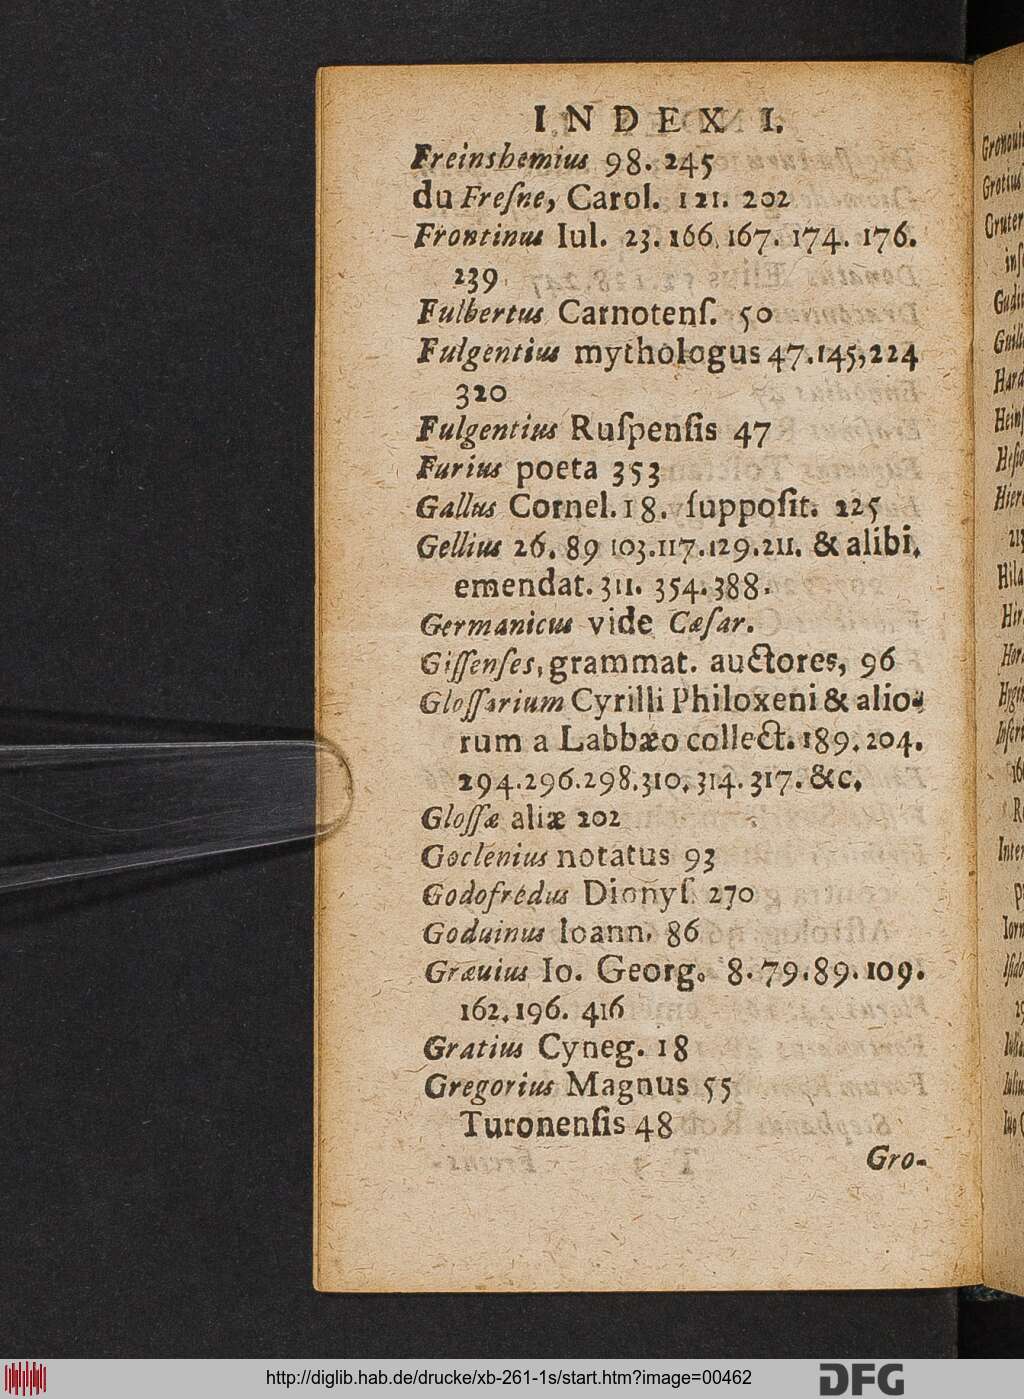 INDEX I.
Freinshemius 98. 245
du Freſne, Carol. 121. 202
Frontinus Iul. 23. 166. 167. 174. 176.
239
Fulbertus Carnotenſ. 50
Fulgentius mythologus 47. 145, 224
320
Fulgentius Ruſpenſis 47
Furius poeta 353
Gallus Cornel. 18. ſuppoſit. 225
Gellius 26. 89 103. 117. 129. 211. & alibi.
emendat. 311. 354. 388.
Germanicus vide Cæſar.
Giſſenſes, grammat. auctores, 96
Gloſſarium Cyrilli Philoxeni & alio-
rum a Labbæo collect. 189. 204.
294. 296. 298. 310. 314. 317. &c.
Gloſſæ aliæ 202
Goclenius notatus 93
Godofredus Dionyſ. 270
Goduinus Ioann. 86
Grævius Io. Georg. 8. 79. 89. 109.
162. 196. 416
Gratius Cyneg. 18
Gregorius Magnus 55
Turonenſis 48
Gro-
Grotius
Hiera
Hila
http://diglib.hab.de/drucke/xb-261-1s/start.htm?image=00462
DFG